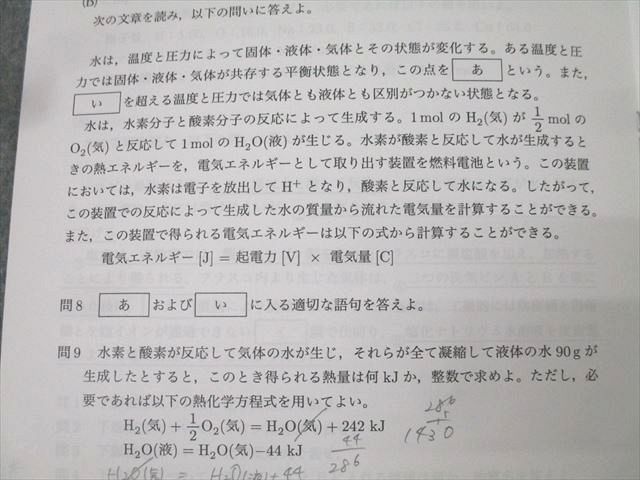 (B)
次の文章を読み，以下の問いに答えよ。
水は，温度と圧力によって固体・液体・気体とその状態が変化する。ある温度と圧
力では固体・液体・気体が共存する平衡状態となり，この点を あ という。また，
い を超える温度と圧力では気体とも液体とも区別がつかない状態となる。
水は，水素分子と酸素分子の反応によって生成する。1 mol の H₂(気) が 1/2 mol の
O₂(気) と反応して 1 mol の H₂O(液) が生じる。水素が酸素と反応して水が生成すると
きの熱エネルギーを，電気エネルギーとして取り出す装置を燃料電池という。この装置
においては，水素は電子を放出して H⁺ となり，酸素と反応して水になる。したがって，
この装置での反応によって生成した水の質量から流れた電気量を計算することができる。
また，この装置で得られる電気エネルギーは以下の式から計算することができる。
電気エネルギー [J] = 起電力 [V] × 電気量 [C]
問8 あ および い に入る適切な語句を答えよ。
問9 水素と酸素が反応して気体の水が生じ，それらが全て凝縮して液体の水 90 g が
生成したとすると，このとき得られる熱量は何 kJ か，整数で求めよ。ただし，必
要であれば以下の熱化学方程式を用いてよい。
286
5
1430
H₂(気) + 1/2 O₂(気) = H₂O(気) + 242 kJ
H₂O(液) = H₂O(気) − 44 kJ
44
286
H₂O(気) = H₂O(液) + 44